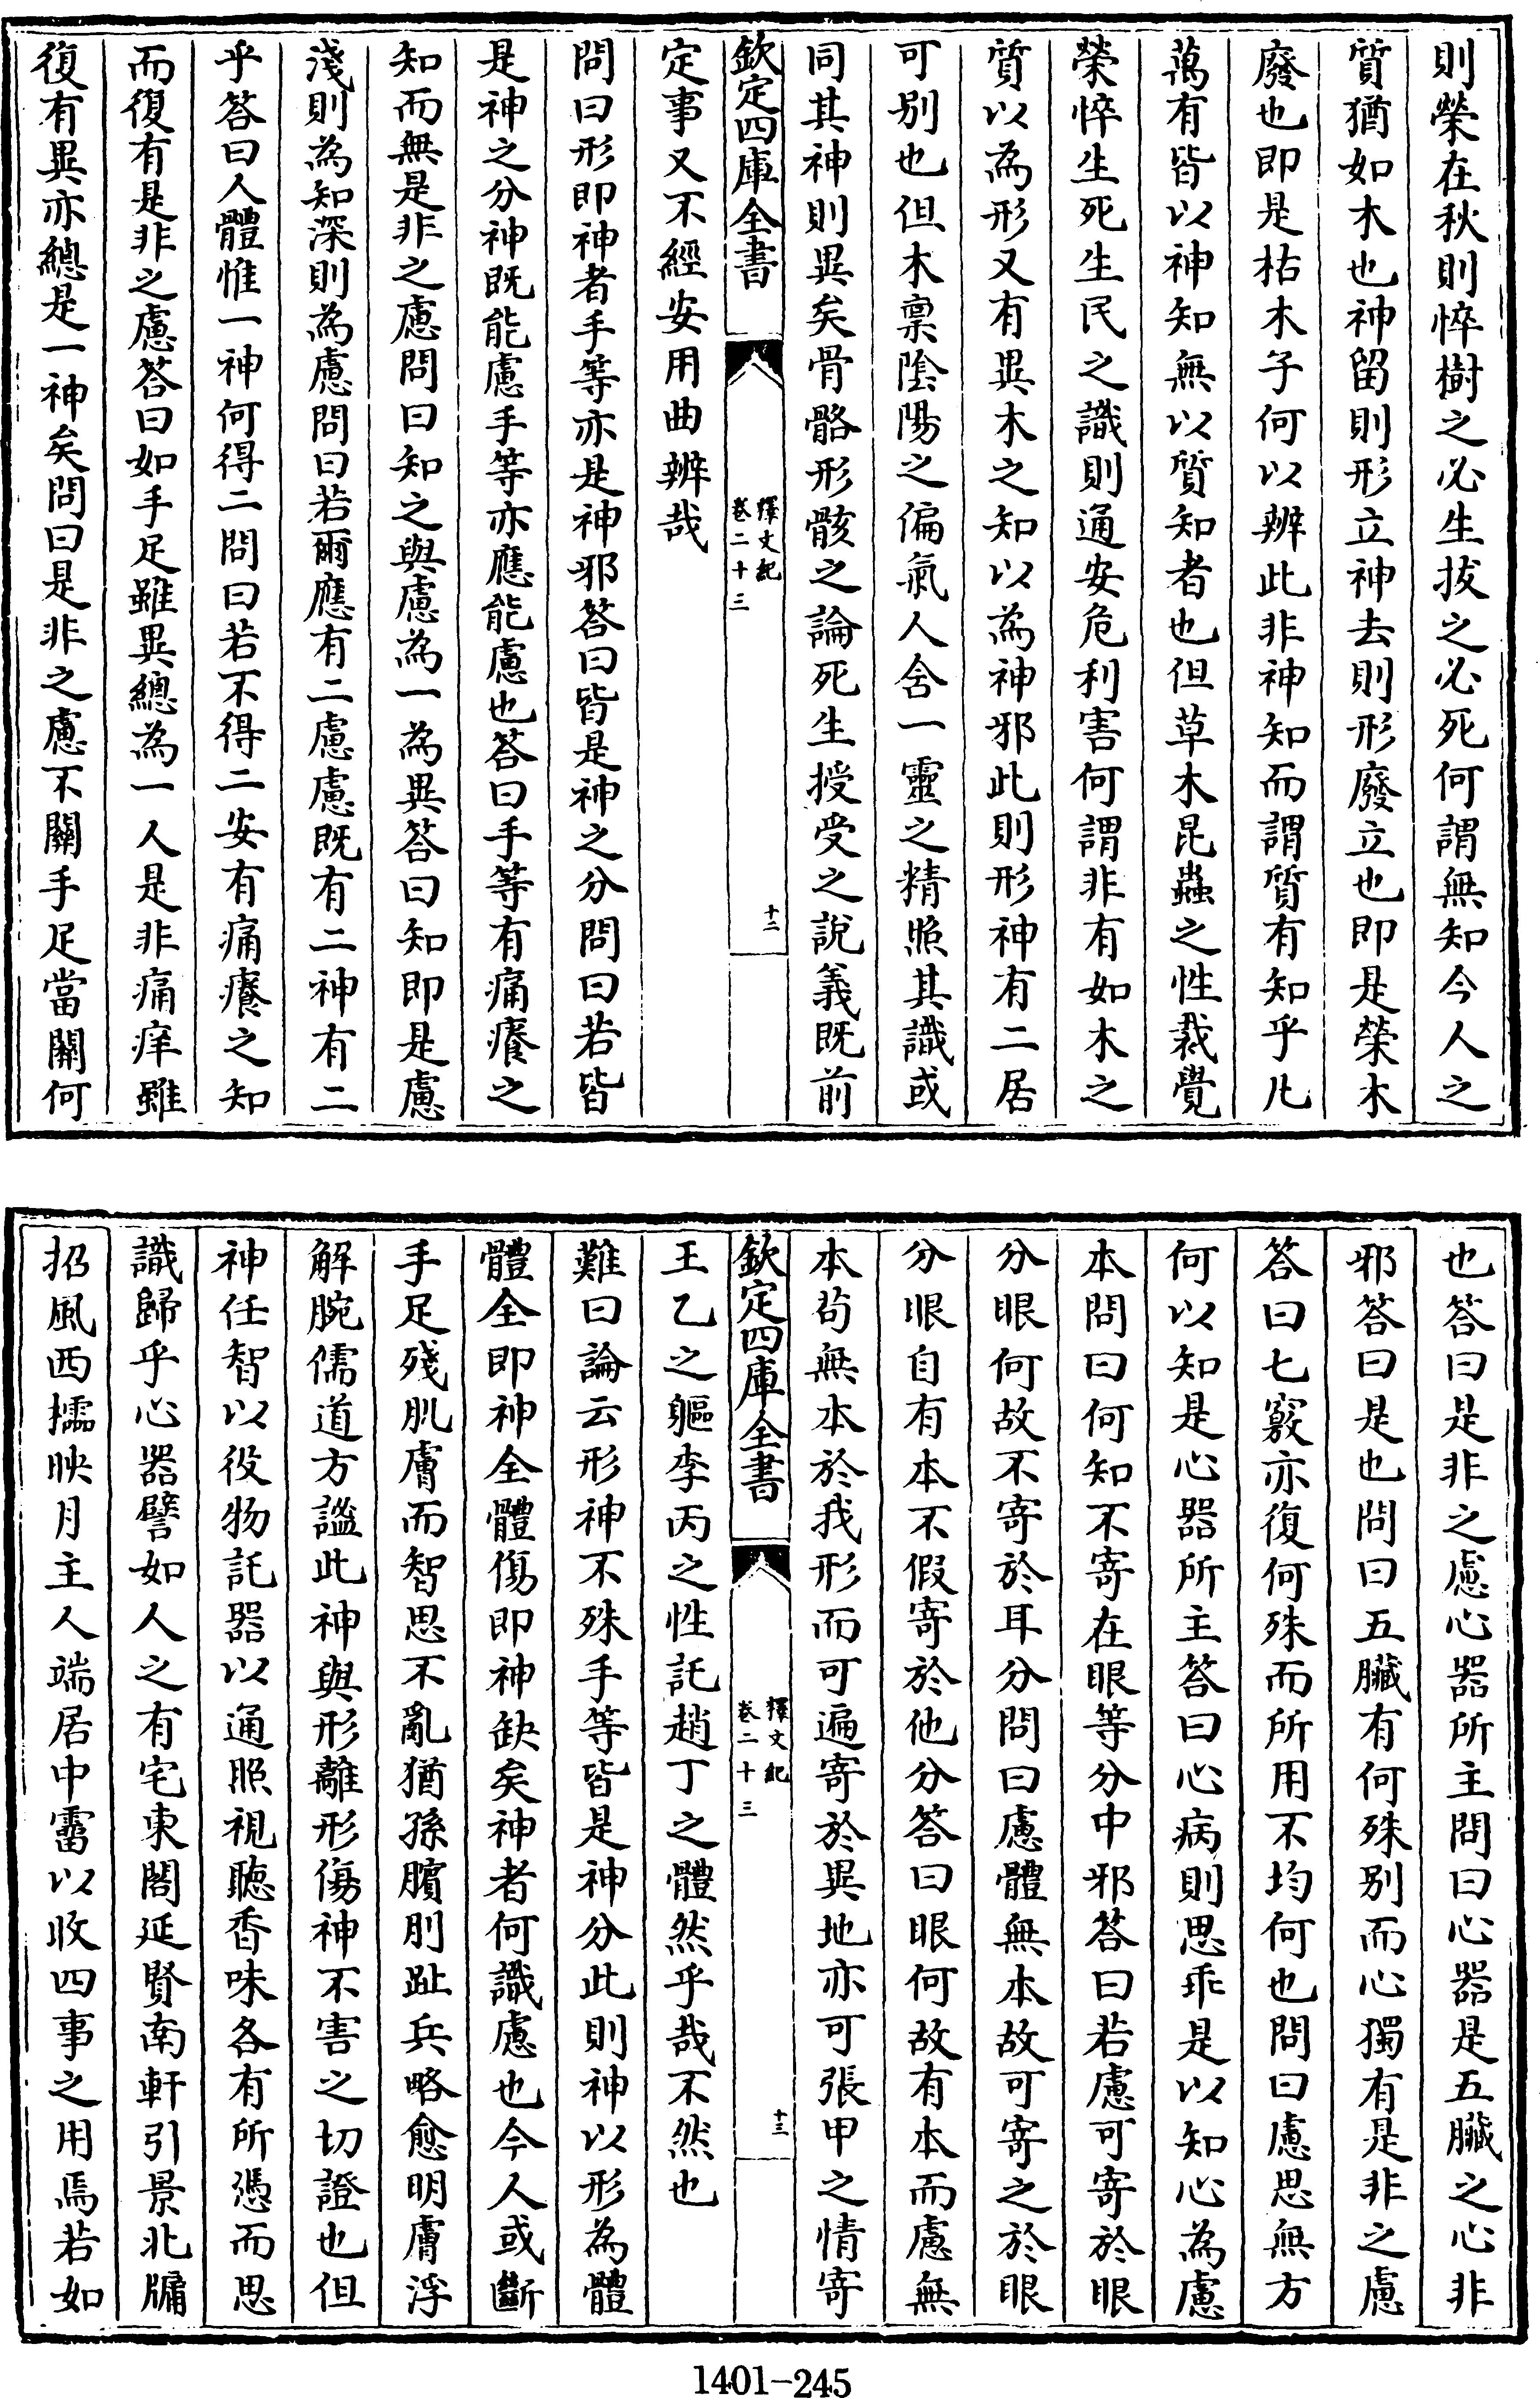 則榮在秋則悴樹之必生拔之必死何謂無知今人之
質猶如木也神留則形立神去則形廢立也即是榮木
廢也即是枯木子何以辨此非神知而謂質有知乎凡
萬有皆以神知無以質知者也但草木昆蟲之性裁覺
榮悴生死生民之識則通安危利害何謂非有如木之
質以為形又有異木之知以為神邪此則形神有二居
可别也但木禀陰陽之偏氣人舍一靈之精照其識或
同其神則異矣骨骼形骸之論死生授受之說義既前
欽定四庫全書
釋文紀
卷二十三
十二
定事又不經安用曲辨哉
問曰形即神者手等亦是神邪答曰皆是神之分問曰若皆
是神之分神既能慮手等亦應能慮也答曰手等有痛癢之
知而無是非之慮問曰知之與慮為一為異答曰知即是慮
淺則為知深則為慮問曰若爾應有二慮慮既有二神有二
乎答曰人體惟一神何得二問曰若不得二安有痛癢之知
而復有是非之慮答曰如手足雖異總為一人是非痛痒雖
復有異亦總是一神矣問曰是非之慮不關手足當關何
也答曰是非之慮心器所主問曰心器是五臟之心非
邪答曰是也問曰五臟有何殊别而心獨有是非之慮
答曰七竅亦復何殊而所用不均何也問曰慮思無方
何以知是心器所主答曰心病則思乖是以知心為慮
本問曰何知不寄在眼等分中邪答曰若慮可寄於眼
分眼何故不寄於耳分問曰慮體無本故可寄之於眼
分眼自有本不假寄於他分答曰眼何故有本而慮無
本苟無本於我形而可遍寄於異地亦可張甲之情寄
欽定四庫全書
釋文紀
卷二十三
十三
王乙之軀李丙之性託趙丁之體然乎哉不然也
難曰論云形神不殊手等皆是神分此則神以形為體
體全即神全體傷即神缺矣神者何識慮也今人或斷
手足殘肌膚而智思不亂猶孫臏刖趾兵略愈明膚浮
解腕儒道方謐此神與形離形傷神不害之切證也但
神任智以役物託器以通照視聽香味各有所憑而思
識歸乎心器譬如人之有宅東閣延賢南軒引景北牖
招風西擩映月主人端居中霤以收四事之用焉若如
1401-245